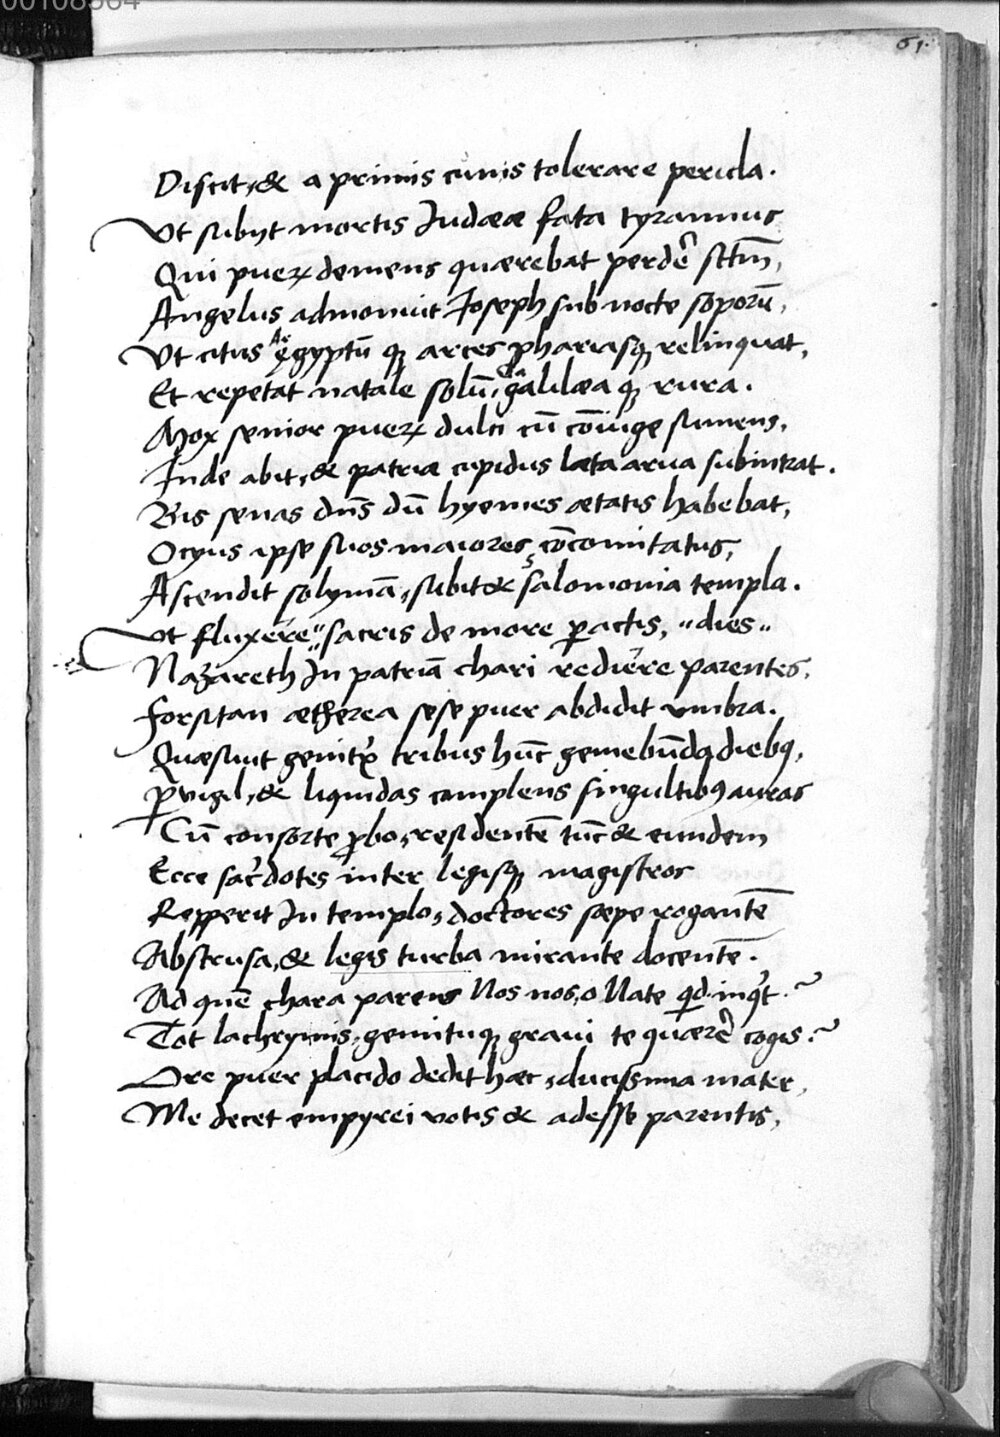 00108504
61.
Discit, & a primis cunis tolerare pericla.
Vt subijt mortis Iudææ fata tyrannus
Qui pueꝝ demens quærebat perdeȓ sctm̄,
Angelus admonuit Ioseph sub nocte soporū,
Vt citus Ægyptū qꝫ arces phariasqꝫ relinquat,
Et repetat natale solū, galilæa qꝫ rura.
Mox senior pueꝝ dulci cū cōiuge sumens,
Inde abit, & patriæ cupidus læta arua subintrat.
Bis senas dn̄s dū hyemes ætatis habebat,
Ocyus ipse suos maiores, cōcomitatus,
Ascendit solymā, subit & salomonia templa.
Vt fluxere " sacris de more ꝑactis, " dies "
Nazareth In patriā chari rediere parentes.
Forsitan ætherea sese puer abdidit vmbra.
Quæsiuit genitx̉ tribus hūc gemebūdꝰ diebꝰ,
ꝑuigil, & liquidas complens singultibꝰ auras
Cū consorte ꝓbo, residentē tūc & eundem
Ecce sac̉dotes inter legisqꝫ magistros
Repperit In templo, doctores sæpe rogantē
Abstrusa, & legis turba mirante docentē.
Ad quē chara parens Nos nos, o Nate qͥd inqͥt.?
Tot lachrymis, gemituqꝫ graui te quæreȓ cogis.?
Ore puer placido dedit hæc, ducissima mater,
Me decet empyrei votis & adesse parentis,